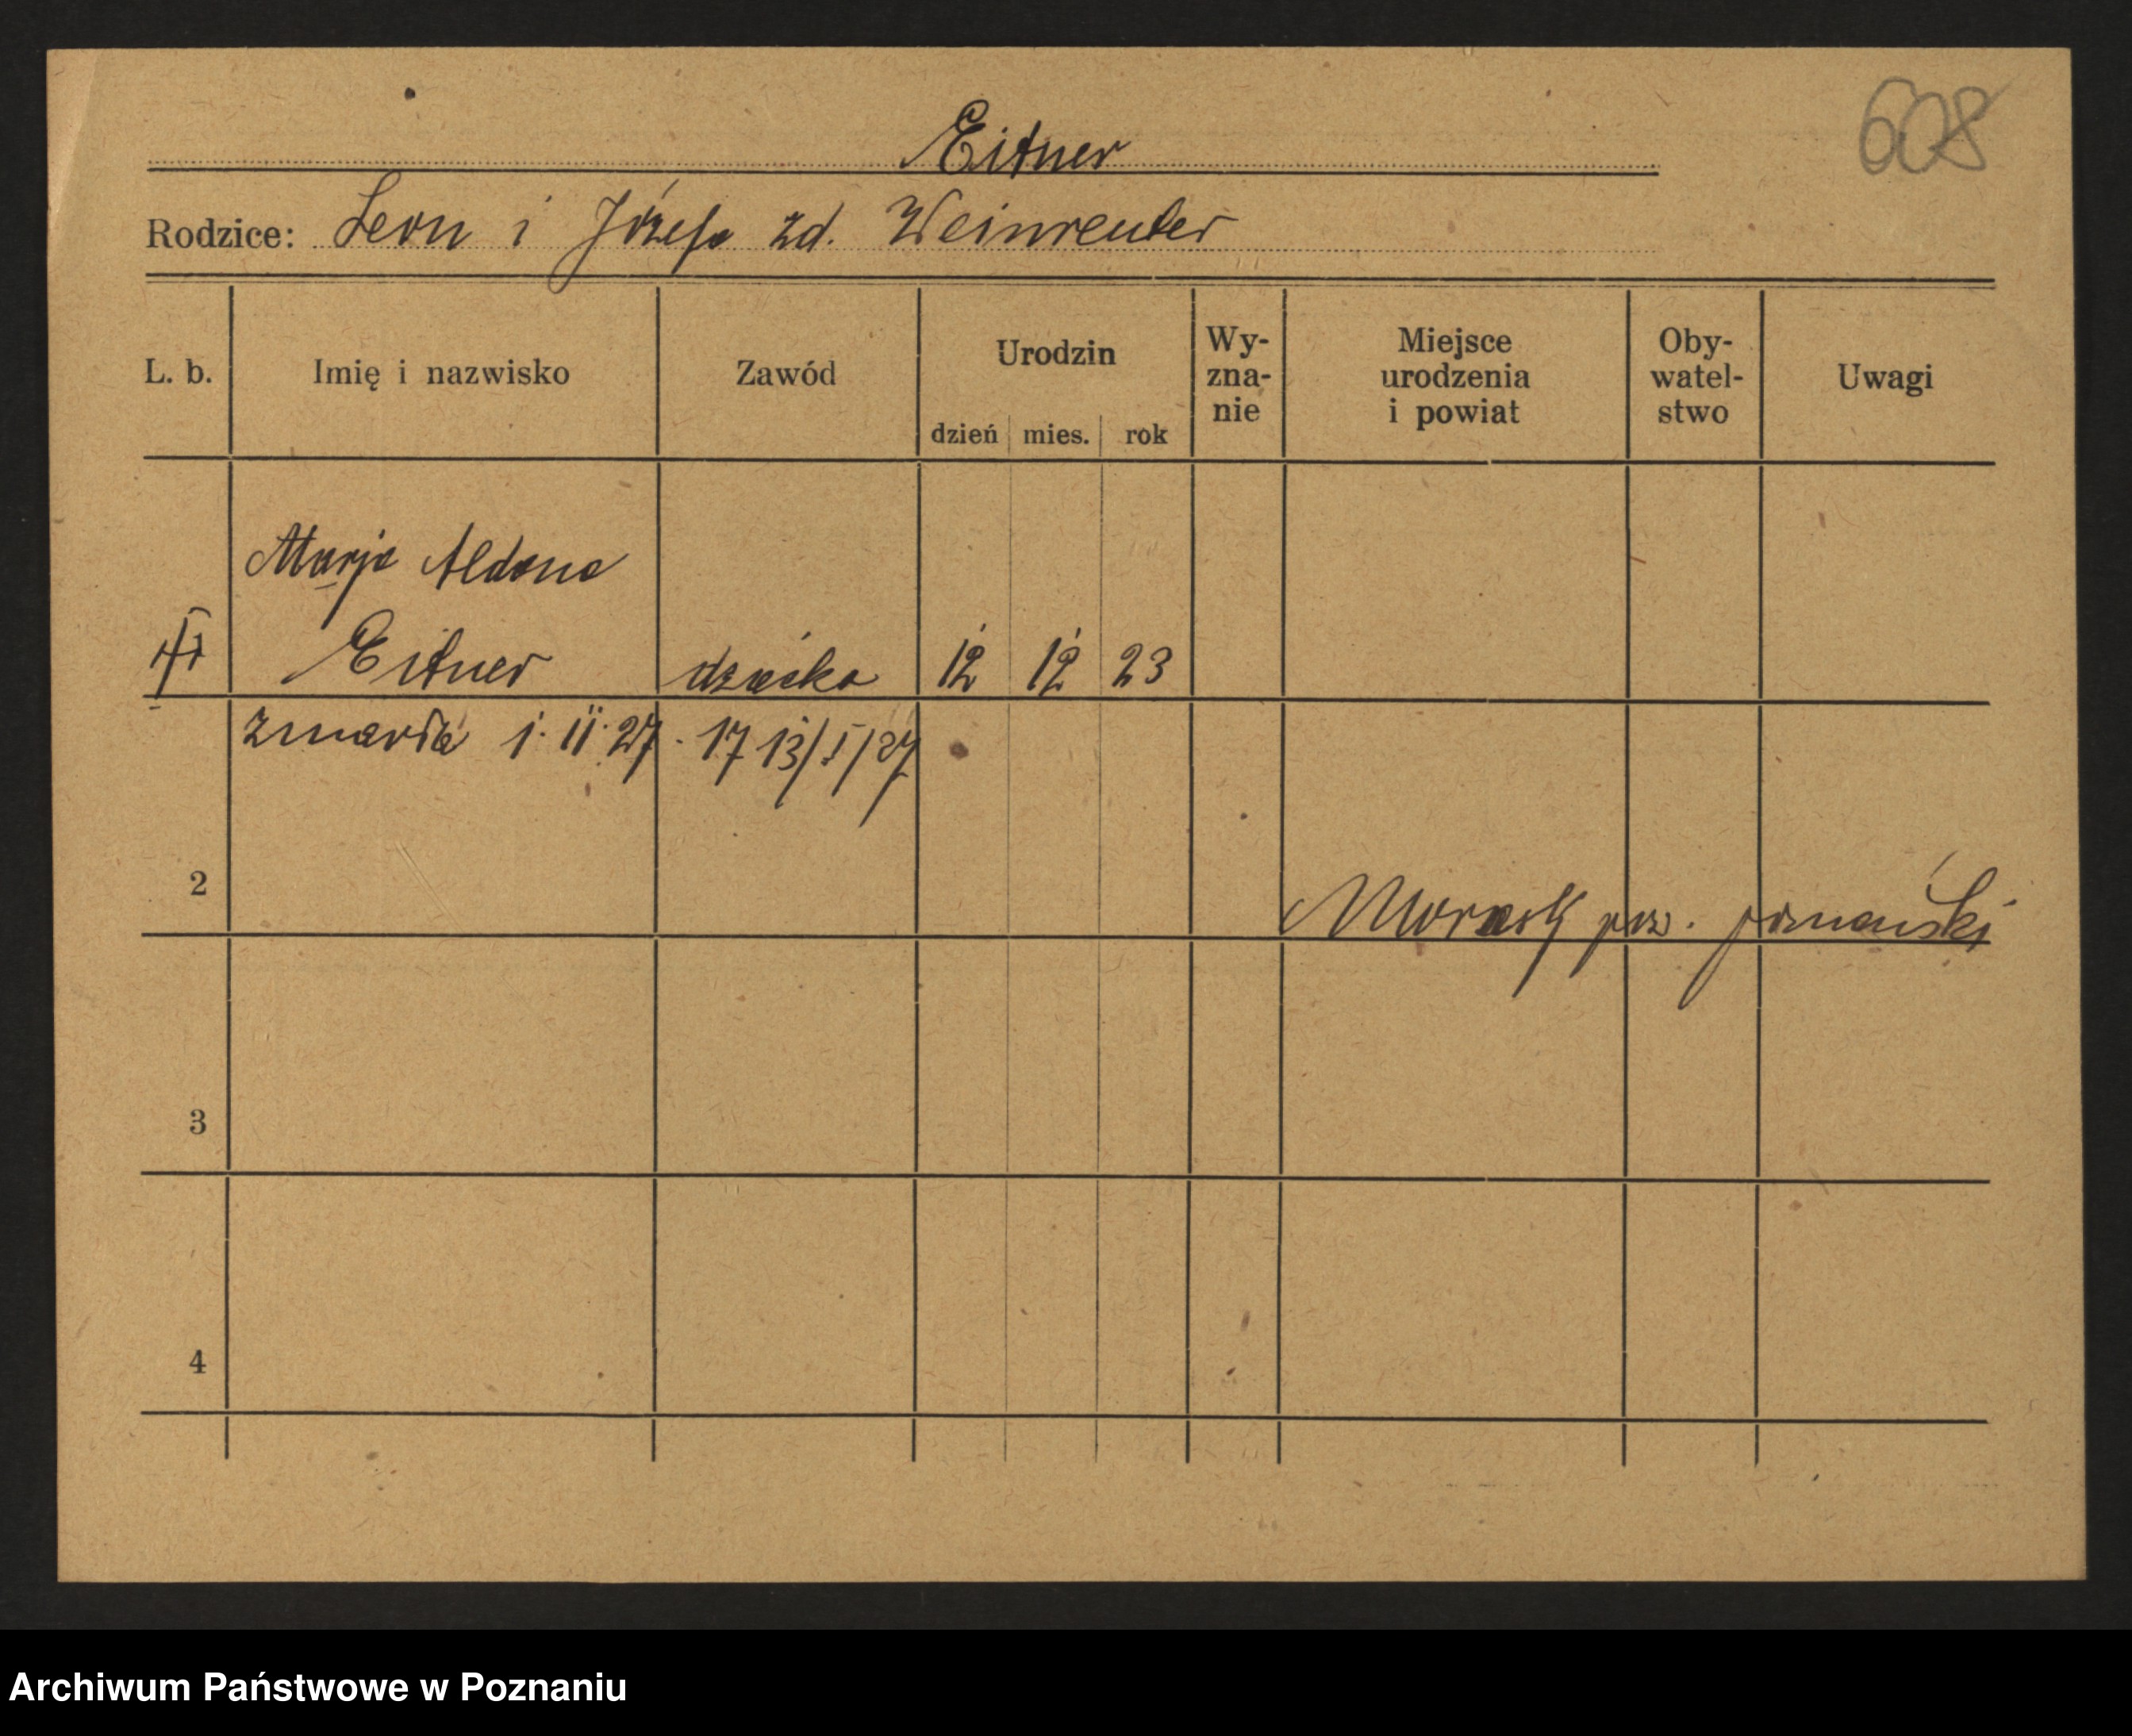 608
Eitner
Rodzice: Leon i Józefa zd. Weinreuter
L. b. Imię i nazwisko Zawód Urodzin dzień mies. rok Wy-zna-nie Miejsce urodzenia i powiat Oby-watel-stwo Uwagi
Marja Aldona
Eitner dziecko 12 12 23
zmarła 1. 11. 27. 17 13/I/27
2 Morasko pow. poznański
3
4
Archiwum Państwowe w Poznaniu